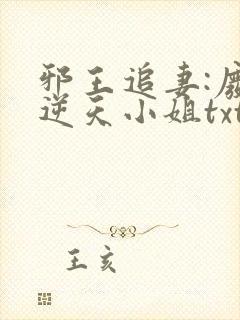 邪王追妻:廢
逆天小姐txt
王亥